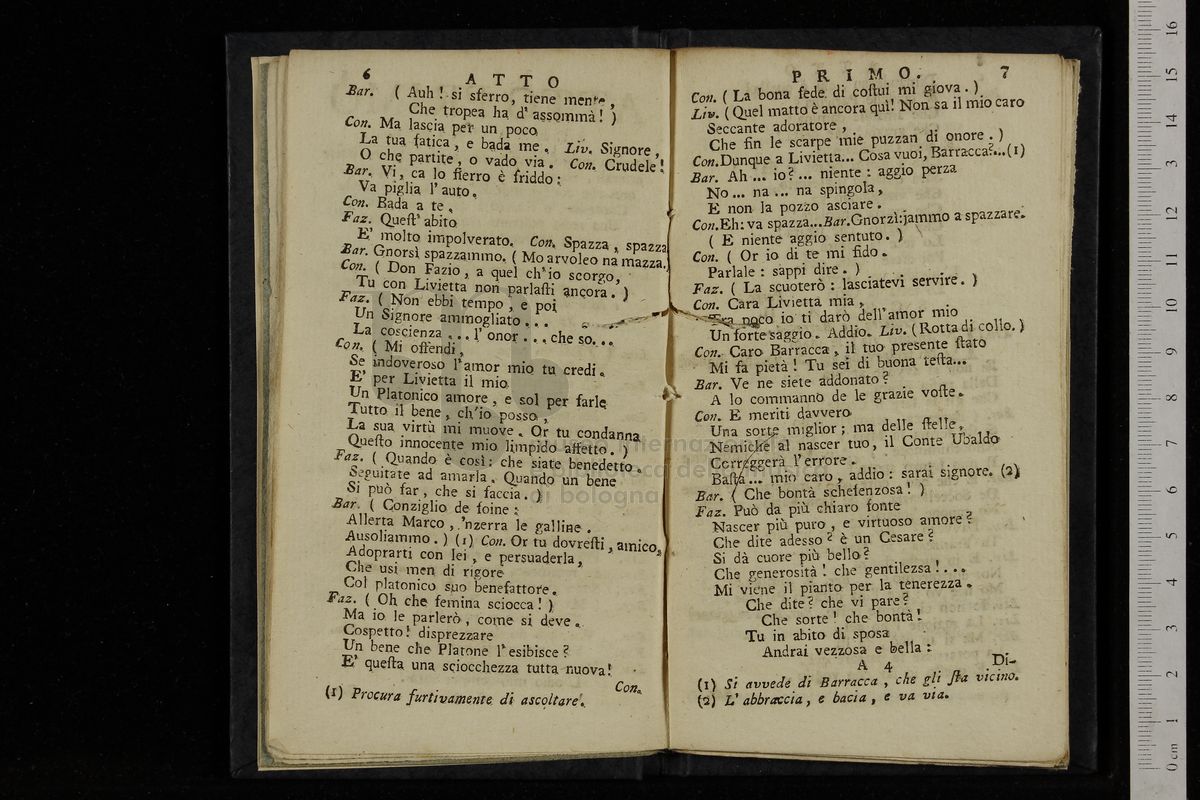 6 ATTO
Bar. ( Auh ! si sferro, tiene mente,
Che tropea ha d' assommà ! )
Con. Ma lascia per un poco
La tua fatica, e bada me. Liv. Signore,
O che partite, o vado via. Con. Crudele !
Bar. Vì, ca lo fierro è friddo:
Va piglia l' auto.
Con. Bada a te.
Faz. Queſt' abito
E' molto impolverato. Con. Spazza, spazza
Bar. Gnorsì spazzammo. ( Mo arvoleo na mazza.)
Con. ( Don Fazio, a quel ch'io scorgo,
Tu con Livietta non parlaſti ancora. )
Faz. ( Non ebbi tempo, e poi
Un Signore ammogliato...
La coscienza... l' onor... che so...
Con. ( Mi offendi,
Se indoveroso l'amor mio tu credi.
E' per Livietta il mio
Un Platonico amore, e sol per farle
Tutto il bene, ch'io posso,
La sua virtù mi muove. Or tu condanna
Queſto innocente mio limpido affetto. )
Faz. ( Quando è così: che siate benedetto.
Seguitate ad amarla. Quando un bene
Si può far, che si faccia. )
Bar. ( Conziglio de foine:
Allerta Marco, 'nzerra le galline.
Ausoliammo. ) (1) Con. Or tu dovreſti, amico,
Adoprarti con lei, e persuaderla,
Che usi men di rigore
Col platonico suo benefattore.
Faz. ( Oh che femina sciocca ! )
Ma io le parlerò, come si deve.
Cospetto! disprezzare
Un bene che Platone l' esibisce ?
E' queſta una sciocchezza tutta nuova!
Con.
(1) Procura furtivamente di ascoltare.
PRIMO. 7
Con. ( La bona fede di coſtui mi giova. )
Liv. ( Quel matto è ancora quì! Non sa il mio caro
Seccante adoratore,
Che fin le scarpe mie puzzan di onore. )
Con. Dunque a Livietta... Cosa vuoi, Barracca?...(1)
Bar. Ah ... io? ... niente : aggio perza
No ... na ... na spingola,
E non la pozzo asciare.
Con. Eh: va spazza...Bar. Gnorzì: jammo a spazzare.
( E niente aggio sentuto. )
Con. ( Or io di te mi fido.
Parlale : sappi dire. )
Faz. ( La scuoterò : lasciatevi servire. )
Con. Cara Livietta mia,
Tra poco io ti darò dell'amor mio
Un forte saggio. Addio. Liv. (Rotta di collo.)
Con. Caro Barracca, il tuo presente ſtato
Mi fa pietà ! Tu sei di buona teſta...
Bar. Ve ne siete addonato?
A lo commanno de le grazie voſte.
Con. E meriti davvero
Una sorte miglior ; ma delle ſtelle,
Nemiche al nascer tuo, il Conte Ubaldo
Correggerà l'errore.
Baſta... mio caro, addio : sarai signore. (2)
Bar. ( Che bontà schefenzosa ! )
Faz. Può da più chiaro fonte
Nascer più puro, e virtuoso amore ?
Che dite adesso ? è un Cesare ?
Si dà cuore più bello ?
Che generosità ! che gentilezsa !...
Mi viene il pianto per la tenerezza.
Che dite ? che vi pare ?
Che sorte ! che bontà !
Tu in abito di sposa
Andrai vezzosa e bella :
A 4 Di-
(1) Si avvede di Barracca, che gli ſta vicino.
(2) L' abbraccia, e bacia, e va via.